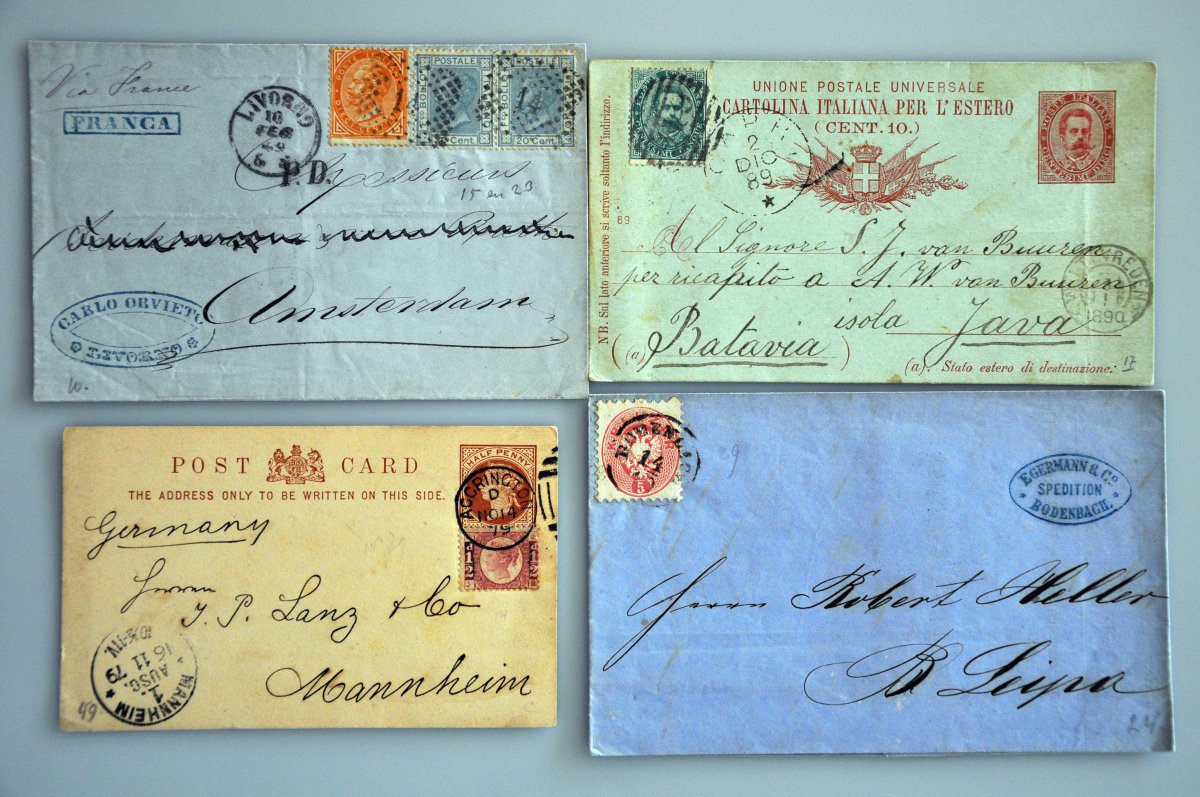 Via France
FRANCA
LIVORNO
10
FEB
P.D.
POSTE ITALIANE
POSTALE
BOLLO
20 Cent.
14
Messieurs
15 en 23
Amsterdam
CARLO ORVIETO
LIVORNO
10.
UNIONE POSTALE UNIVERSALE
CARTOLINA ITALIANA PER L'ESTERO
(CENT. 10.)
2
DIC
89
NB. Sul lato anteriore si scrive soltanto l'indirizzo.
89
Al Signore S. J. van Buuren
per ricapito a A. W. van Buuren
isola Java
(a) Batavia )
(a). Stato estero di destinazione.
1890
17
POST CARD
THE ADDRESS ONLY TO BE WRITTEN ON THIS SIDE.
HALF PENNY
ACCRINGTON
D
NO 14
79
1/2
1/2
Germany
Herren
J. P. Lanz & Co
Mannheim
MANNHEIM
1.
AUSG.
16 11
79
49
BODENBACH
14
5
29
E. GERMANN & Co.
SPEDITION
BODENBACH.
Herrn Robert Heller
B Leipa
24